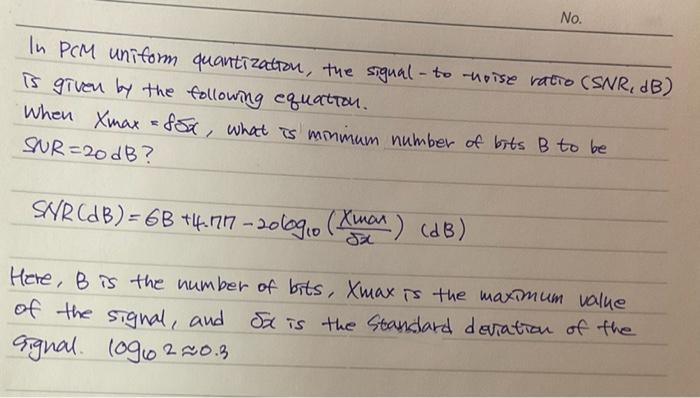 No.
In PCM uniform quantization, the signal-to-noise ratio (SNR, dB)
is given by the following equation.
When Xmax = 8σx, what is minimum number of bits B to be
SNR=20dB?
SNR(dB) = 6B + 4.77 - 20log10 (Xmax/σx) (dB)
Here, B is the number of bits, Xmax is the maximum value
of the signal, and σx is the standard deviation of the
signal. log10 2 ≈ 0.3